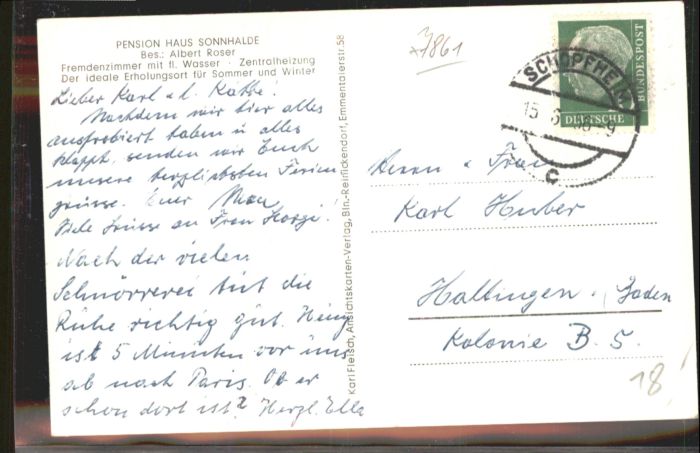 PENSION HAUS SONNHALDE
Bes.: Albert Roser
Fremdenzimmer mit fl. Wasser · Zentralheizung
Der ideale Erholungsort für Sommer und Winter
Lieber Karl u. l. Käthe!
Nachdem wir hier alles
ausprobiert haben u. alles
klappt, senden wir Euch
unsere herzlichsten Ferien
grüsse. Euer Max
Viele Grüsse an Frau
Nach der vielen
Schnörrerei tut die
Ruhe richtig gut. Heinz
ist 5 Minuten vor uns
ab nach Paris. Ob er
schon dort ist? Herzl. Ella
Karl Fleisch, Ansichtskarten-Verlag, Bln.-Reinickendorf, Emmentalerstr. 58
7861
SCHOPFHEIM
15
c
DEUTSCHE
BUNDESPOST
Herrn u Frau
Karl Huber
Haltingen, Baden
Kolonie B. 5.
18